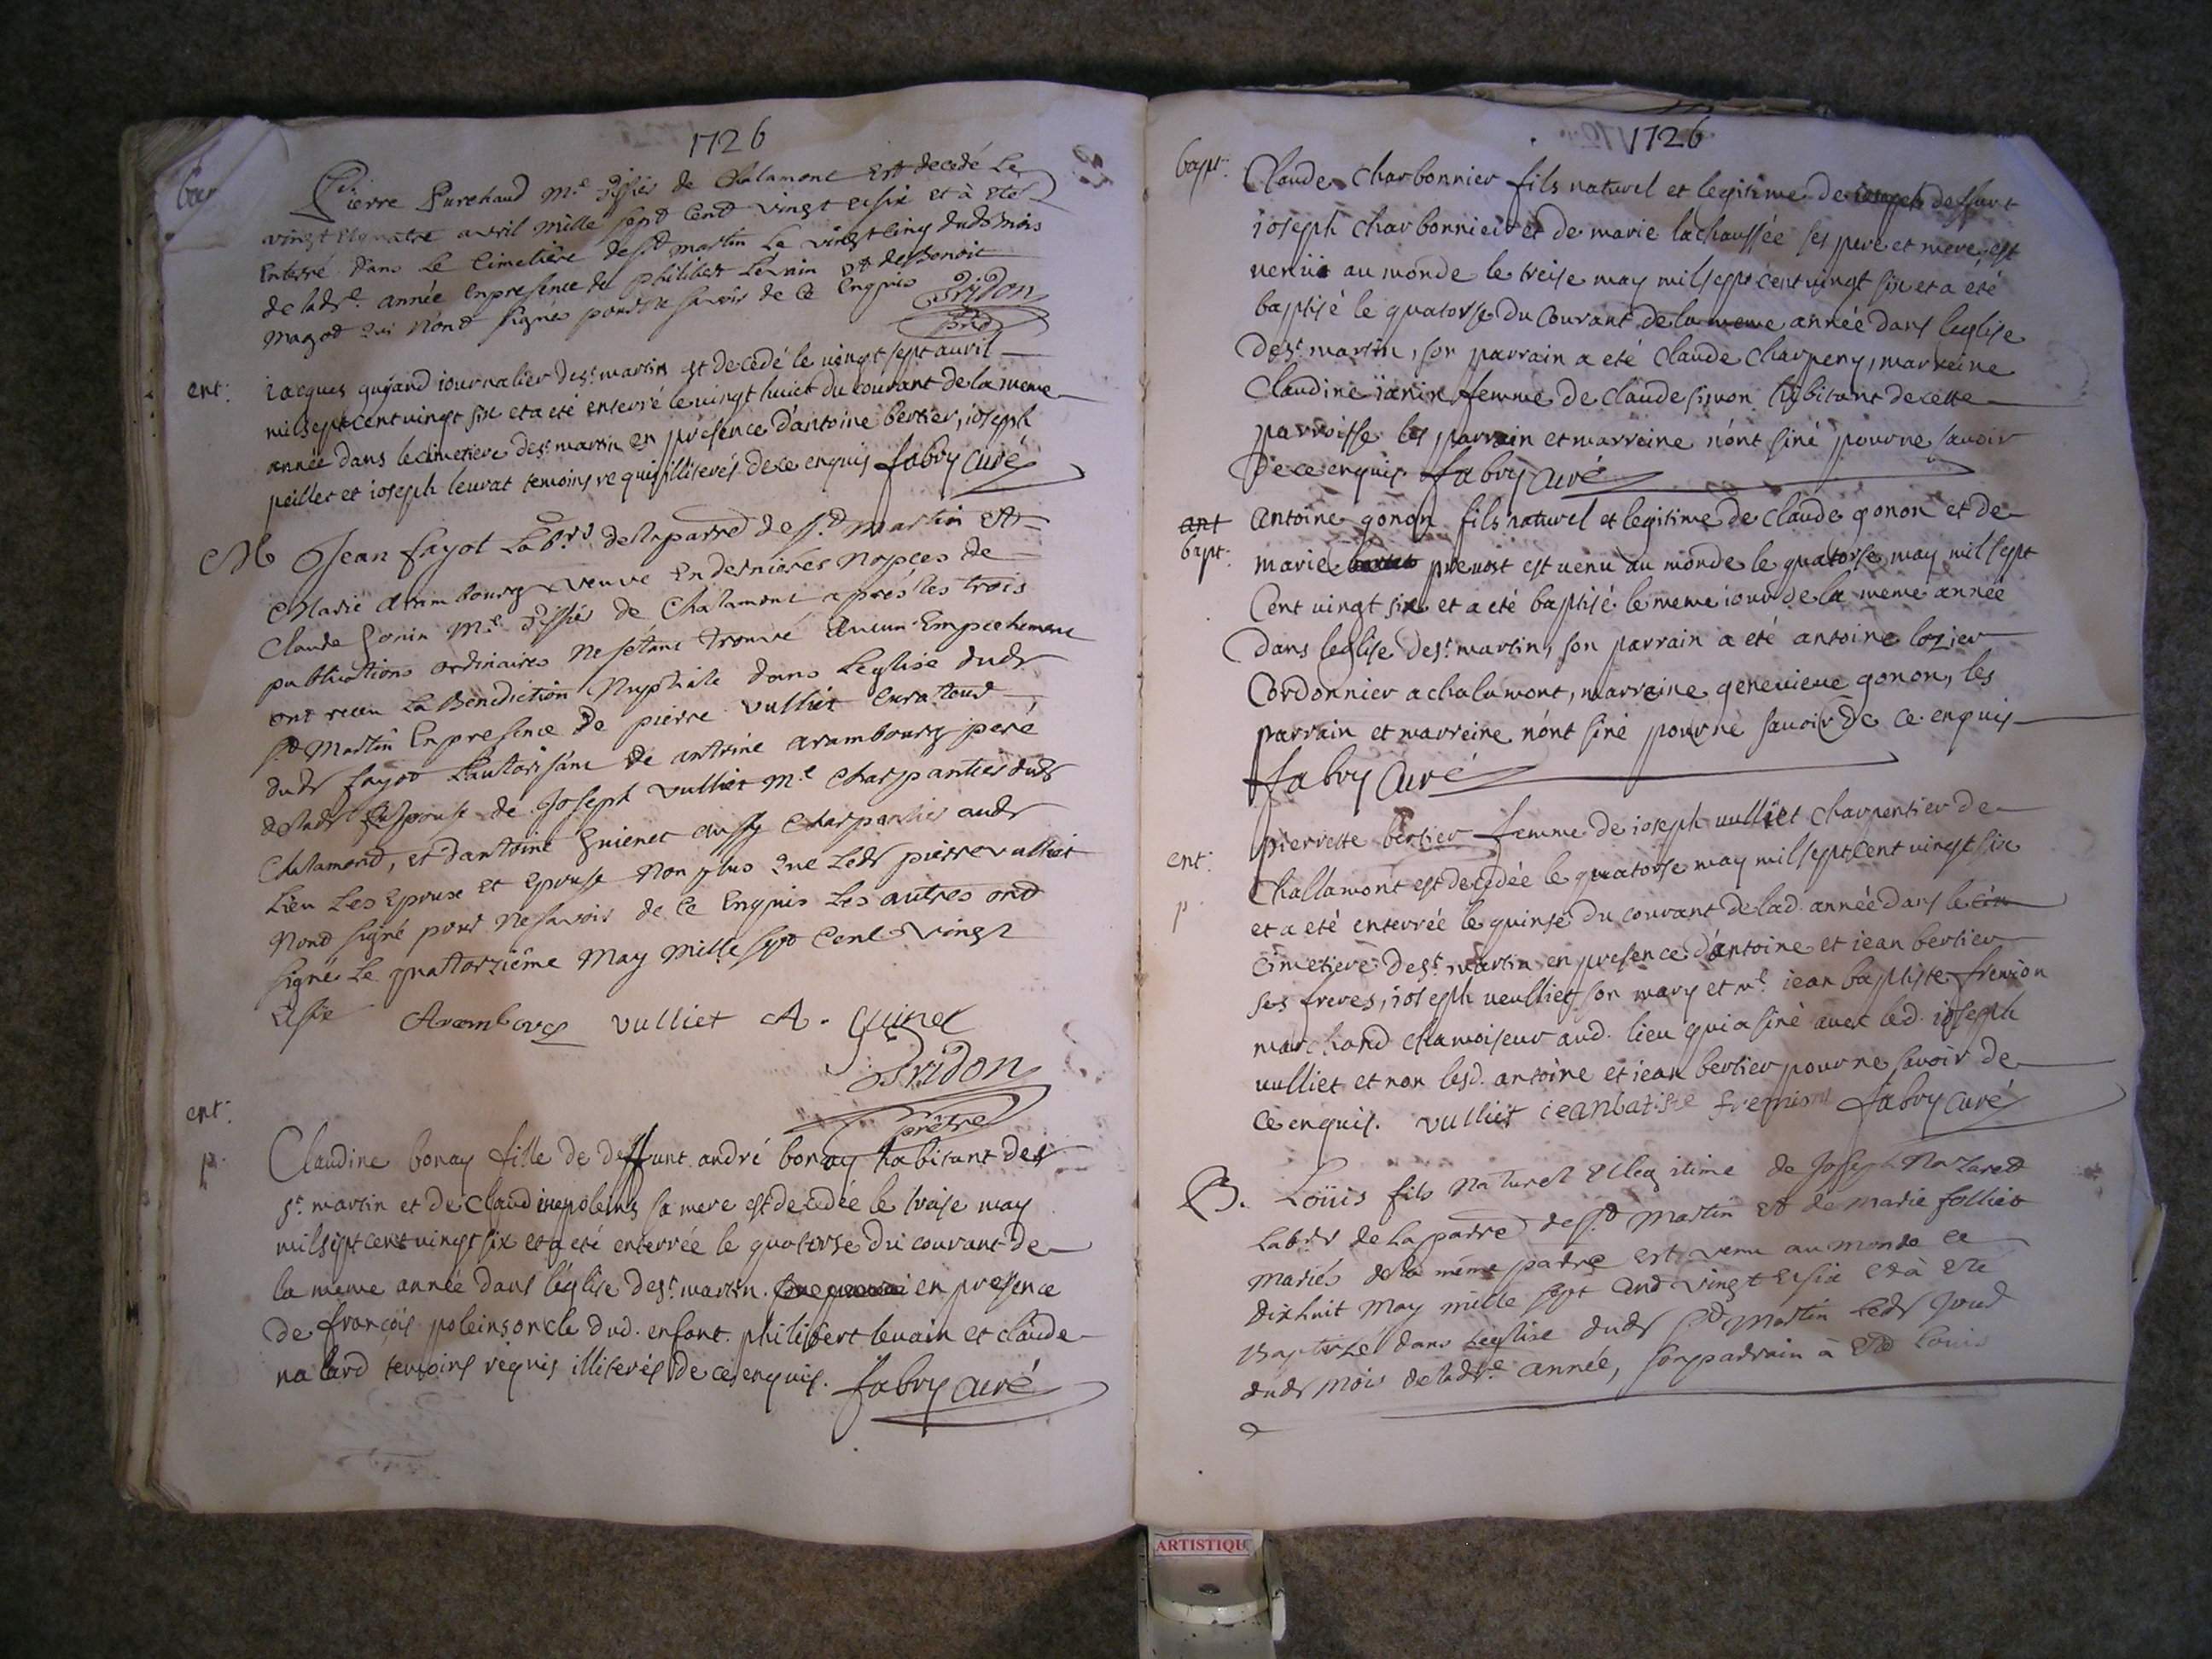 1726
Pierre Purehaud M.e Tissier de Chalamont Est decedé Le
vingt et quatre avril mille sept Cent vingt et six et à eté
Enterré dans Le Cimetiere de st martin Le vingt cinq dudt mois
de ladte. année Enpresence de philibert Levrin et de Benoit
magod qui N'ont signés pour ne savoir de Ce Enquis Fridon
Ptre
ent: iacques guyand iournalier de st. martin est decedé le vingt sept avril
mil sept cent vingt six et a eté enterré le vingt huict du courant de la meme
année dans le cimetiere de st. martin en présence d'antoine bertier, ioseph
peillet et ioseph leurat temoins requis illiterés de ce enquis fabry Curé
M Jean fayot Lab.r de La parre de st. Martin Et
Marie Arambourg veuve En dernieres Nopces de
Claude Gonin M.e Tissier de Chalamont après les trois
publications ordinaires Ne s'étant trouvé Aucun Empechement
ont receu La Benediction Nuptiale dans L'eglise dudt
st Martin Enpresence de pierre vulliet Curateur
dudt fayot L'autorisant de antoine arambourg peré
de ladt Espouse de Joseph vulliet M.e Charpantier dudt
Chalamont, et d'antoine Guienet aussy Charpantier audt
Lieu Les Epoux et Epouse Non plus que Ledt pierre vulliet
Nont signé pour Ne savoir de Ce Enquis Les autres ont
signé Le quattorziême May mille sept Cent vingt
et six Arambourg vulliet A. Guinet
Fridon
Prêtre
ent:
p. Claudine bonay fille de deffunt andré bonay habitant de
st. martin et de Claudine poleins sa mere est decedée le treise may
mil sept cent vingt six et a eté enterrée le quatorse du courant de
la meme année dans l'église de st. martin. en presence
de françois poleins oncle dud. enfant. philibert levain et claude
nalard temoins réquis illiterés de ce enquis. fabry curé
1726
bapt: Claude Charbonnier fils naturel et legitime de deffunt
ioseph charbonnier et de marie lachaussée ses pere et mere, est
venüe au monde le treise may mil sept cent vingt six et a été
baptisé le quatorse du Courant de la meme année dans leglise
de st. martin, son parrain a eté Claude Charpeny, marreine
Claudine ianin femme de Claude simon habitant de cette
parroisse les parrain et marreine n'ont siné pour ne savoir
de ce enquis. fabry curé
ant antoine gonon fils naturel et legitime de Claude gonon et de
bapt: marie prevost est venu au monde le quatorse may mil sept
Cent vingt six et a eté baptisé le meme iour de la meme année
dans leglise de st. martin, son parrain a eté antoine lozier
Cordonnier a chalamont, marreine genevieve gonon, les
parrain et marreine n'ont siné pour ne savoir de ce enquis
fabry Curé
ent: pierrette bertier femme de ioseph vulliet Charpentier de
p. Challamont est decedée le quatorse may mil sept Cent vingt six
et a eté enterrée le quinse du courant de lad. année dans le
cimetiere de st. martin en presence d'antoine et iean bertier
ses freres, ioseph veulliet son mary et mr. iean baptiste fremion
marchand chamoiseur aud. lieu qui a siné avec led. ioseph
vulliet et non lesd. antoine et iean bertier pour ne savoir de
ce enquis. vulliet ieanbatiste fremion fabry Curé
B. Loüis fils Naturel et Legitime de Joseph Nazared
Labr de La parre de st Martin et de Marie folliet
Mariés de la même parre est venu au monde Le
dixhuit May mille sept Cend Vingt et six et à ete
Baptizé dans L'eglise dudt st Martin Ledt Jour
dudt Mois de ladte. année, son parrain à Eté Louis
ARTISTIQU